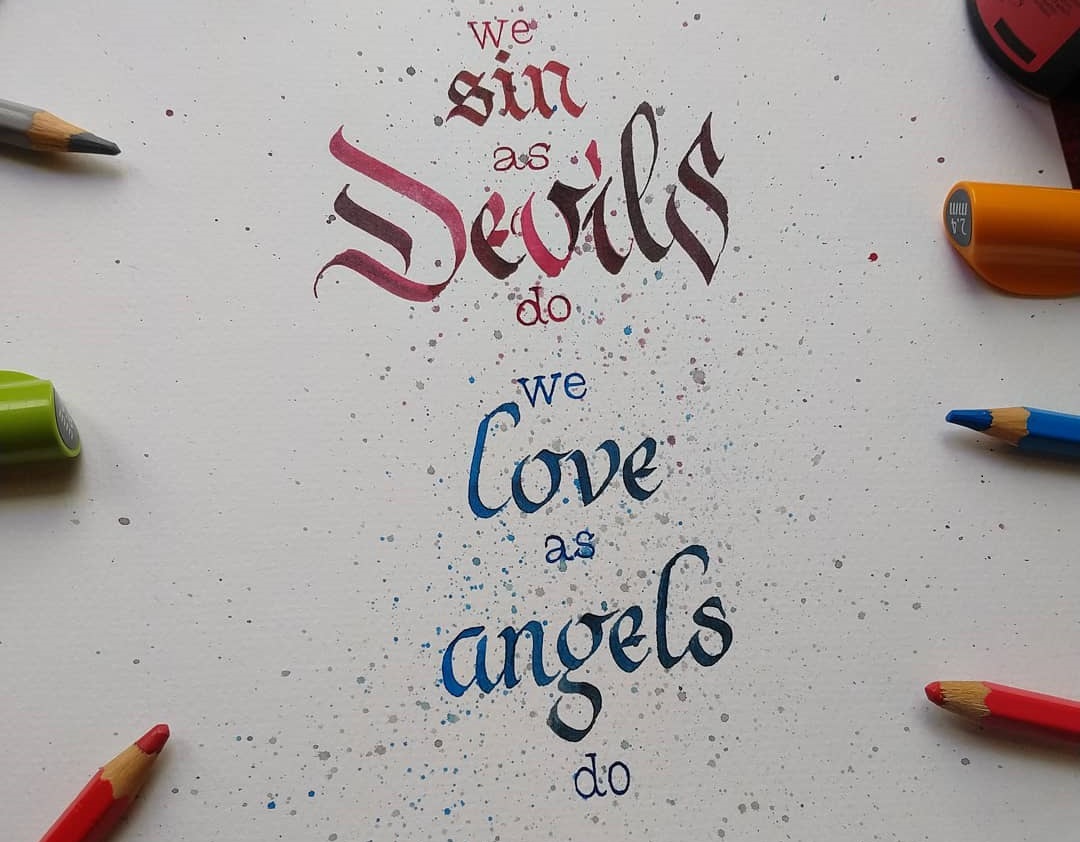 we
sin
as
Devils
do
we
love
as
angels
do
2,4
mm